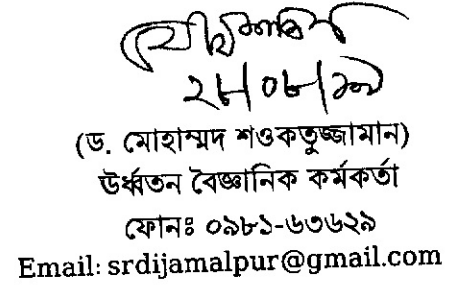 ২৮/০৮/১৯
(ড. মোহাম্মদ শওকতুজ্জামান)
ঊর্ধ্বতন বৈজ্ঞানিক কর্মকর্তা
ফোনঃ ০৯৮১-৬৩৬২৯
Email: srdijamalpur@gmail.com